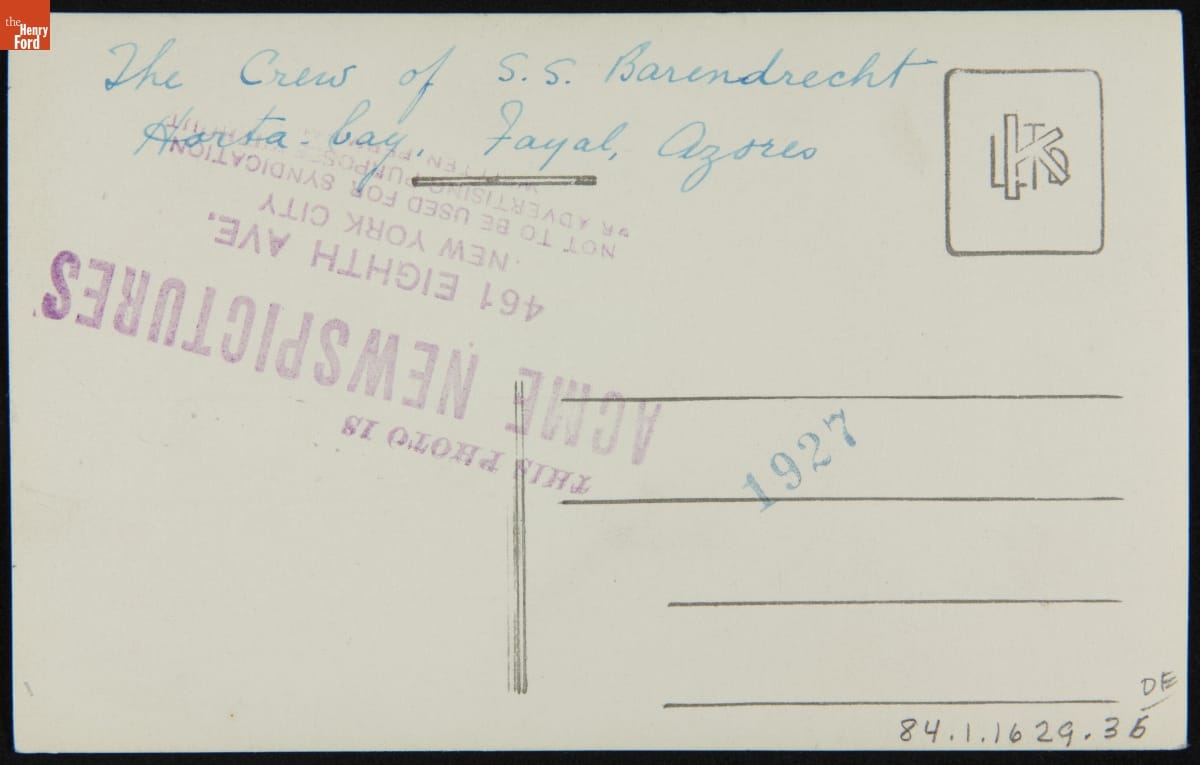 the
Henry
Ford
The Crew of S.S. Barendrecht
Horta-bay, Fayal, Azores
THIS PHOTO IS
ACME NEWSPICTURES
461 EIGHTH AVE.
NEW YORK CITY
NOT TO BE USED FOR SYNDICATION
OR ADVERTISING PURPOSES
1927
DE
84.1.1629.36